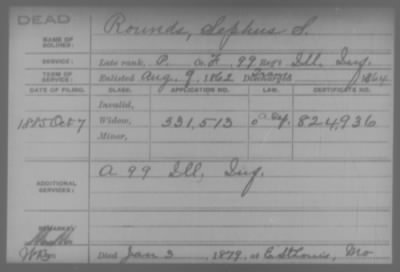 DEAD
NAME OF SOLDIER: Rounds, Sephus S.
SERVICE: Late rank, P. Co. F, 99 Reg't Ill. Inf.
TERM OF SERVICE: Enlisted Aug. 9, 1862 1864
DATE OF FILING. CLASS. APPLICATION NO. LAW. CERTIFICATE NO.
Invalid,
1885 Oct 7 Widow, 331,513 824,936
Minor,
ADDITIONAL SERVICES: A 99 Ill. Inf.
REMARKS:
Died Jan 3, 1879, at E. St Louis, Mo